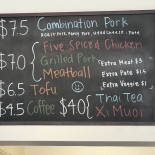 $7.5 Combination Pork
Roast Pork, Patty Pork, Head Cheese, Pate
$7.0 { Five Spiced Chicken
Grilled Pork
Meatball
Extra Meat $3
Extra Pate $1.5
Extra Veggie $1
$6.5 Tofu
$4.5 Coffee $4.0 { Thai Tea
Xi Muoi